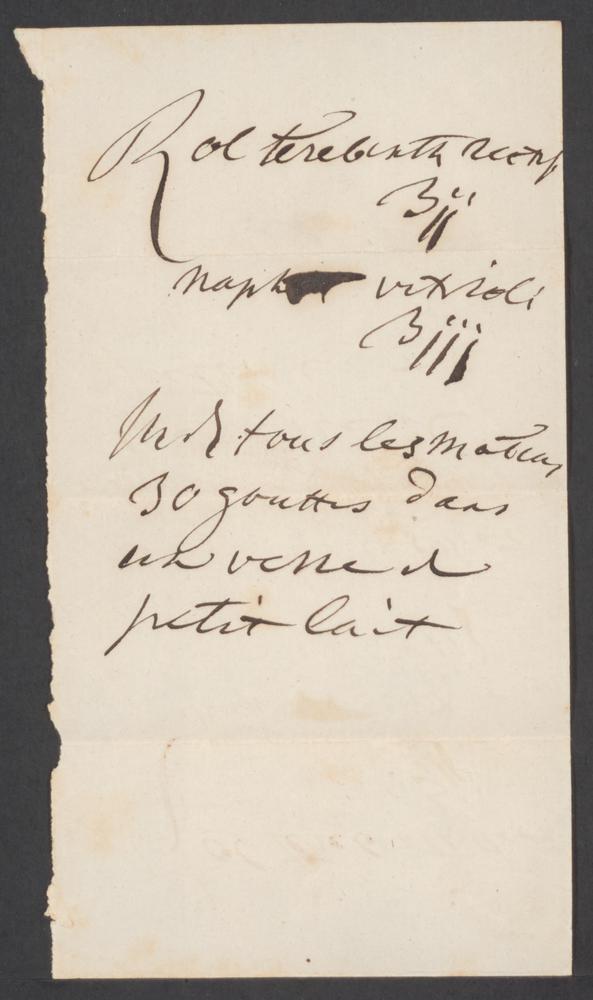 R ol terebinth rectif
ʒii
naph vitrioli
ʒiii
MdS tous les matins
30 gouttes dans
un verre d
petit lait